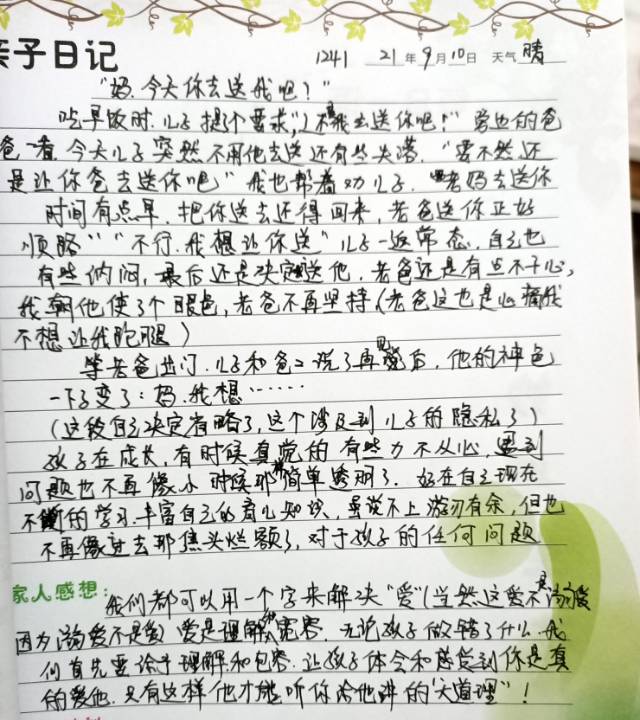 亲子日记 1241 21年9月10日 天气 晴
"妈.今天你去送我吧!"
吃早饭时.儿子提个要求,"不我去送你吧!"旁边的爸
爸一看.今天儿子突然不用他去送还有些失落."要不然还
是让你爸去送你吧"我也帮着劝儿子."老妈去送你
时间有点早.把你送去还得回来,老爸送你正好
顺路""不行.我想让你送"儿子一返常态.自己也
有些纳闷,最后还是决定送他.老爸还是有点不干心,
我朝他使了个眼色,老爸不再坚持(老爸这也是心痛我
不想让我跑腿)
等老爸出门.儿子和爸爸说了再见后,他的神色
一下子变了:妈.我想……
(这段自己决定省略了,这个涉及到儿子的隐私了)
孩子在成长,有时候真觉的有些力不从心,遇到
问题也不再像小时候那样简单透明了.好在自己现在
不断的学习.丰富自己的育儿知识,虽说不上游刃有余,但也
不再像过去那焦头烂额了,对于孩子的任何问题
家人感想:我们都可以用一个字来解决"爱"(当然这爱不是溺爱
因为溺爱不是爱)爱是理解和宽容.无论孩子做错了什么.我
们首先要给于理解和包容.让孩子体会和感觉到你是真
的爱他.只有这样他才能听你给他讲的"大道理"!